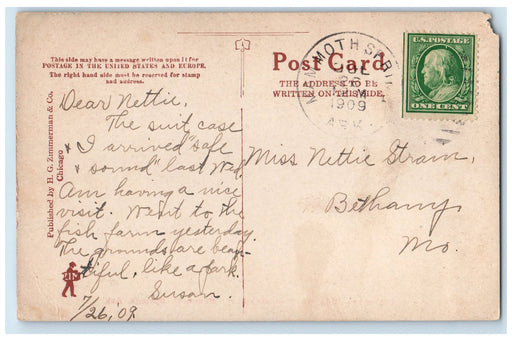 This side may have a message written upon it for
POSTAGE IN THE UNITED STATES AND EUROPE.
The right hand side must be reserved for stamp
and address.
Post Card
THE ADDRESS TO BE
WRITTEN ON THIS SIDE.
MAMMOTH SPRING
JUL
1909
ARK.
U.S. POSTAGE
ONE CENT
Published by H. G. Zimmerman & Co.
Chicago
Dear Nettie,
The suit case
& I arrived "safe
& sound" last Wed.
Am having a nice
visit. Went to the
fish farm yesterday.
The grounds are beau-
tiful, like a park.
Susan.
7/26, 09.
Miss Nettie Stram,
Bethany
Mo.